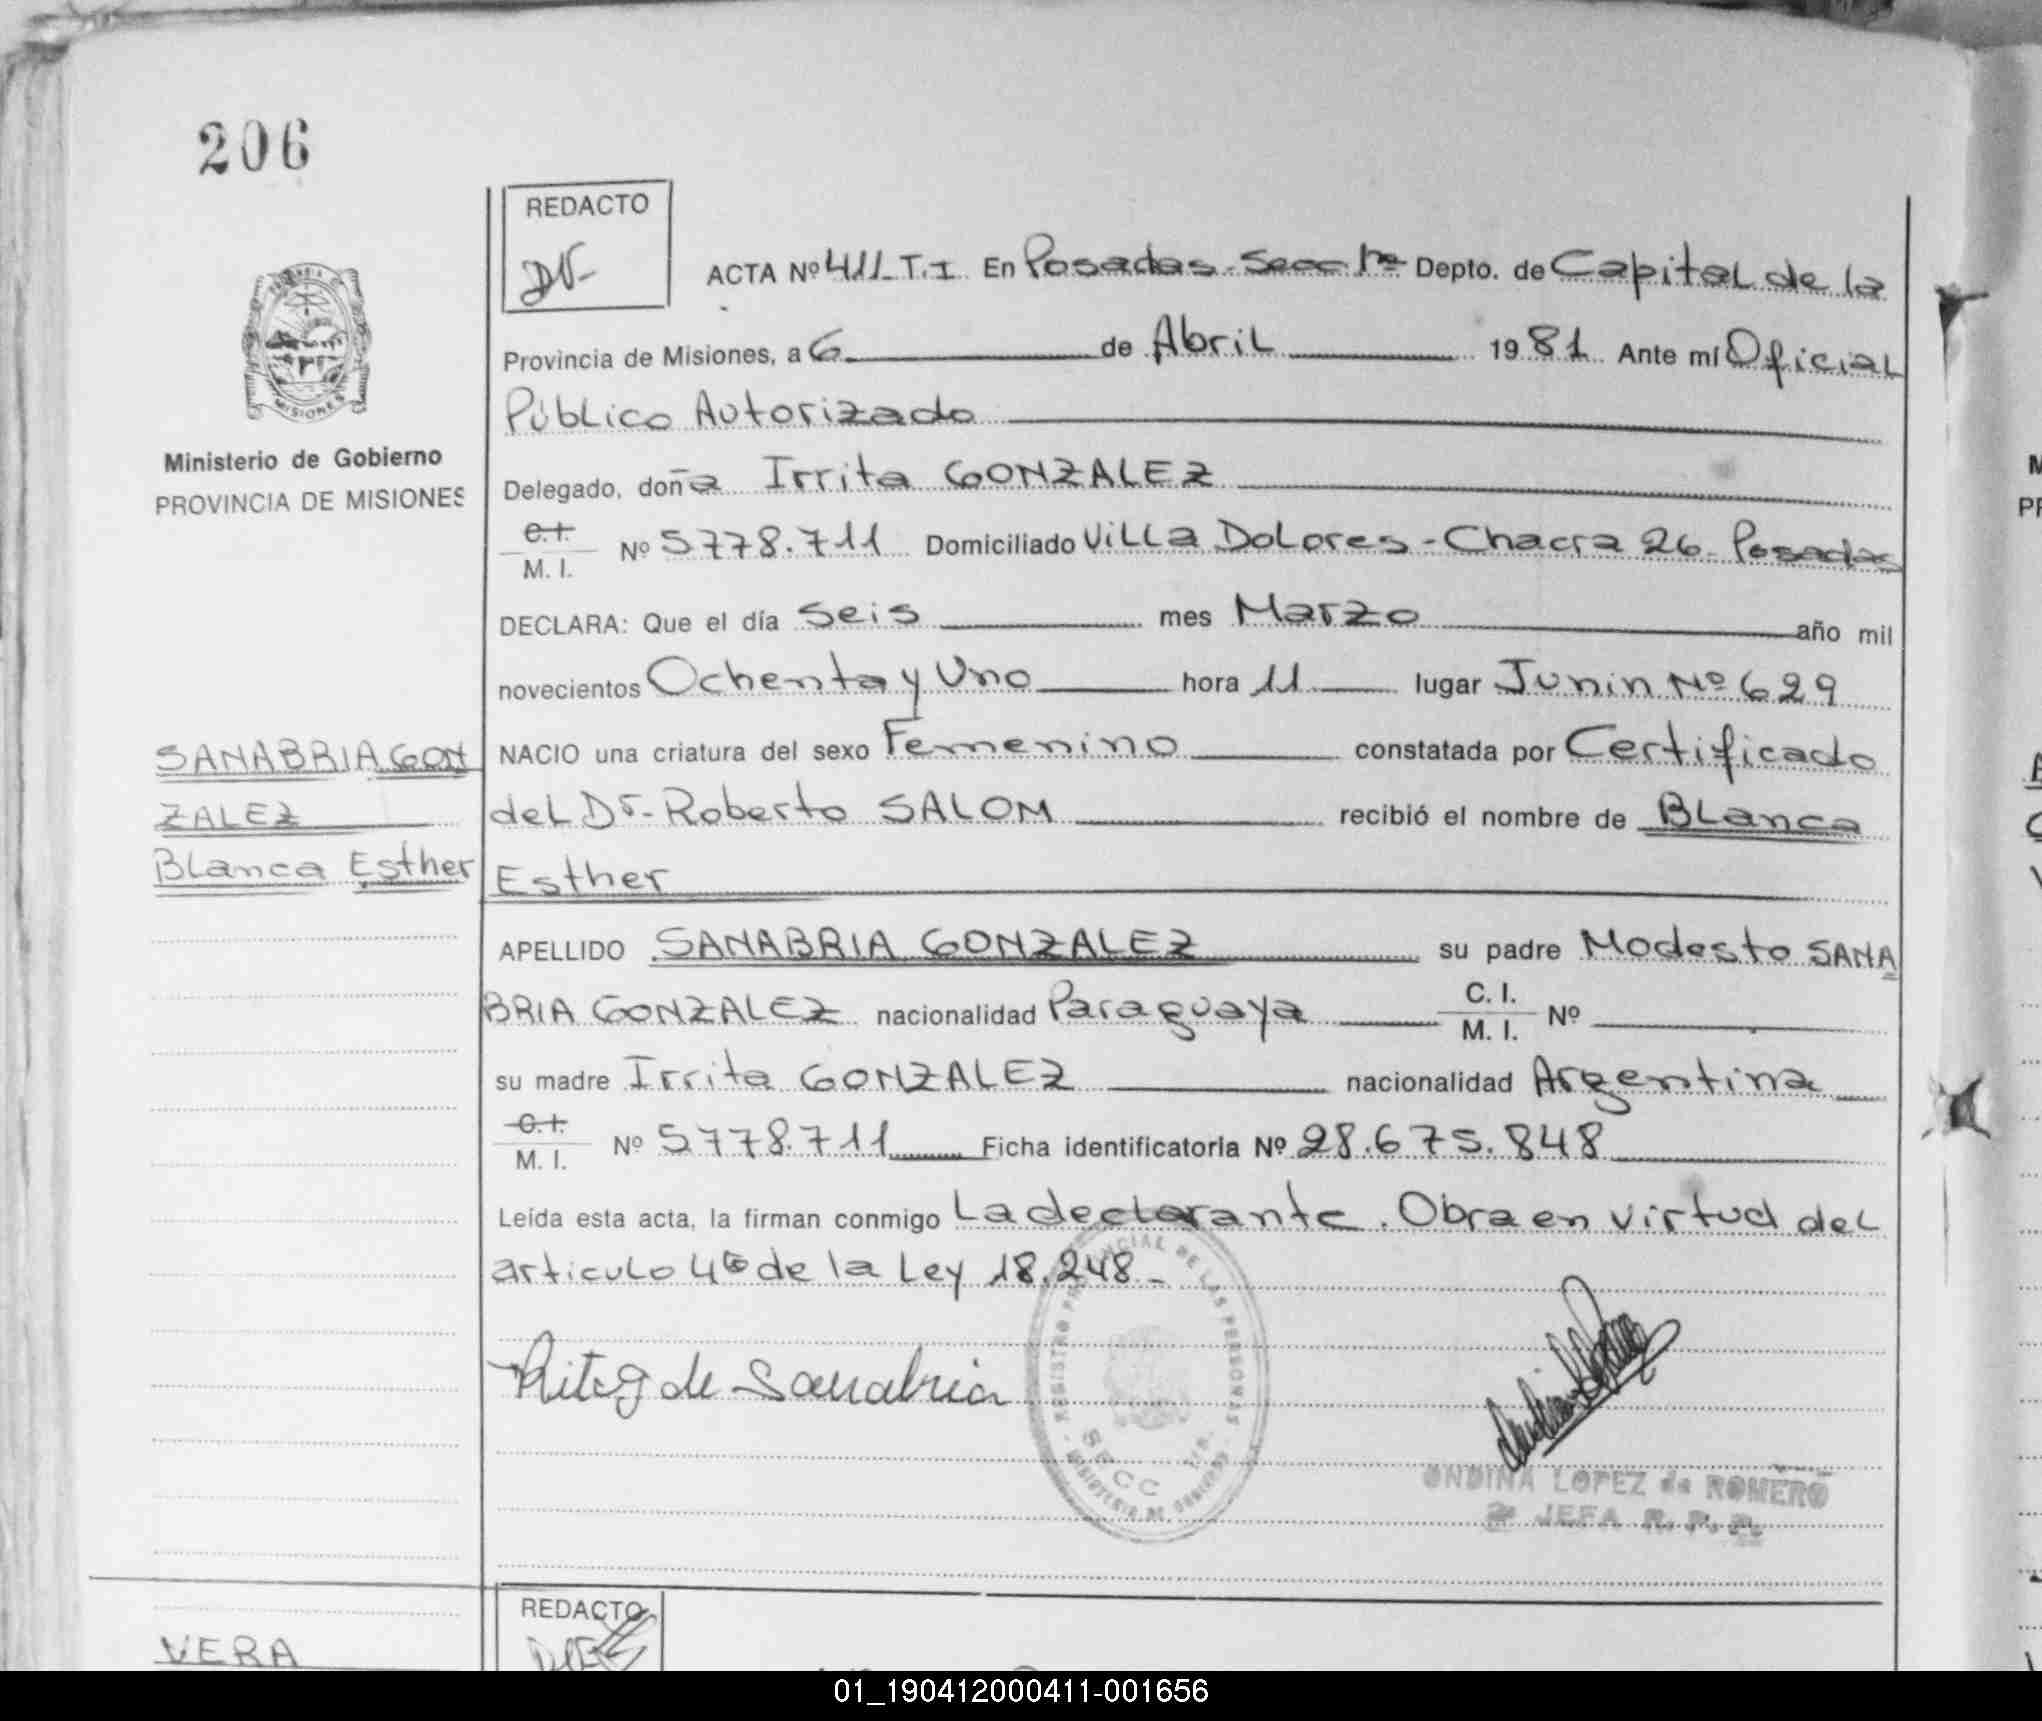 206
REDACTO
ACTA Nº 411 T. I En Posadas-Secc 1ra Depto. de Capital de la
Provincia de Misiones, a 6 de Abril 1981 Ante mí Oficial
Público Autorizado
Ministerio de Gobierno
PROVINCIA DE MISIONES
Delegado, doña Irrita GONZALEZ
C.I. M. I. Nº 5778.711 Domiciliado Villa Dolores - Chacra 26- Posadas
DECLARA: Que el día Seis mes Marzo año mil
novecientos Ochenta y Uno hora 11 lugar Junin Nº 629
NACIO una criatura del sexo Femenino constatada por Certificado
del Dr- Roberto SALOM recibió el nombre de Blanca
Esther
SANABRIA GON
ZALEZ
Blanca Esther
APELLIDO SANABRIA GONZALEZ su padre Modesto SANA
BRIA GONZALEZ nacionalidad Paraguaya C. I. M. I. Nº
su madre Irrita GONZALEZ nacionalidad Argentina
C.I. M. I. Nº 5778.711 Ficha identificatoria Nº 28.675.848
Leída esta acta, la firman conmigo La declarante. Obra en virtud del
articulo 4º de la Ley 18.248-
Rita g de Sanabria
REGISTRO PROVINCIAL DE LAS PERSONAS
SECC
MINISTERIO DE GOBIERNO
ONDINA LOPEZ de ROMERO
JEFA R. P. P.
REDACTO
VERA
01_190412000411-001656